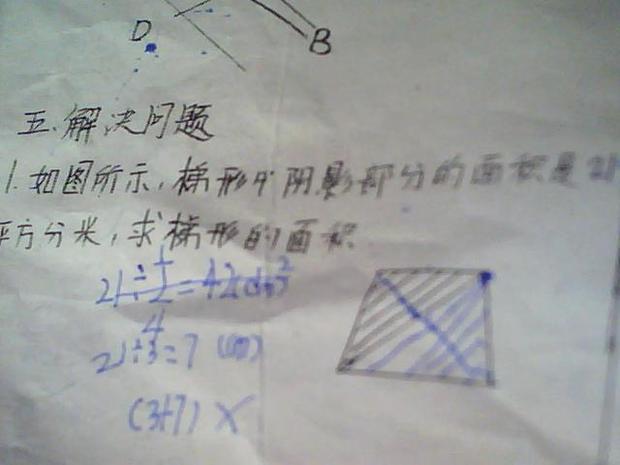 D
B
五.解决问题
1.如图所示,梯形中阴影部分的面积是21
平方分米,求梯形的面积
21÷
=42(dm²
4
21÷3=7 (cm)
(3+7)×